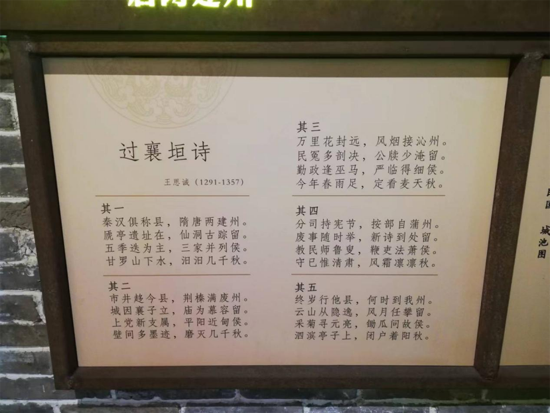 过襄垣诗
王思诚（1291-1357）
其一
秦汉俱称县，隋唐两建州。
虒亭遗址在，仙洞古踪留。
五季迭为主，三家并列侯。
甘罗山下水，汩汩几千秋。
其二
市井趋今县，荆榛满废州。
城因襄子立，庙为慕容留。
上党新支属，平阳近甸侯。
壁间多墨迹，磨灭几千秋。
其三
万里花封远，风烟接沁州。
民冤多剖决，公牍少淹留。
勤政逢巫马，严临得细侯。
今年春雨足，定看麦天秋。
其四
分司持宪节，按部自蒲州。
废事随时举，新诗到处留。
教民师鲁叟，鞭吏法萧侯。
守己惟清肃，风霜凛凛秋。
其五
终岁行他县，何时到我州。
云山从隐逸，风月任攀留。
采菊寻元亮，锄瓜问故侯。
泗滨亭子上，闭户着阳秋。
城池图